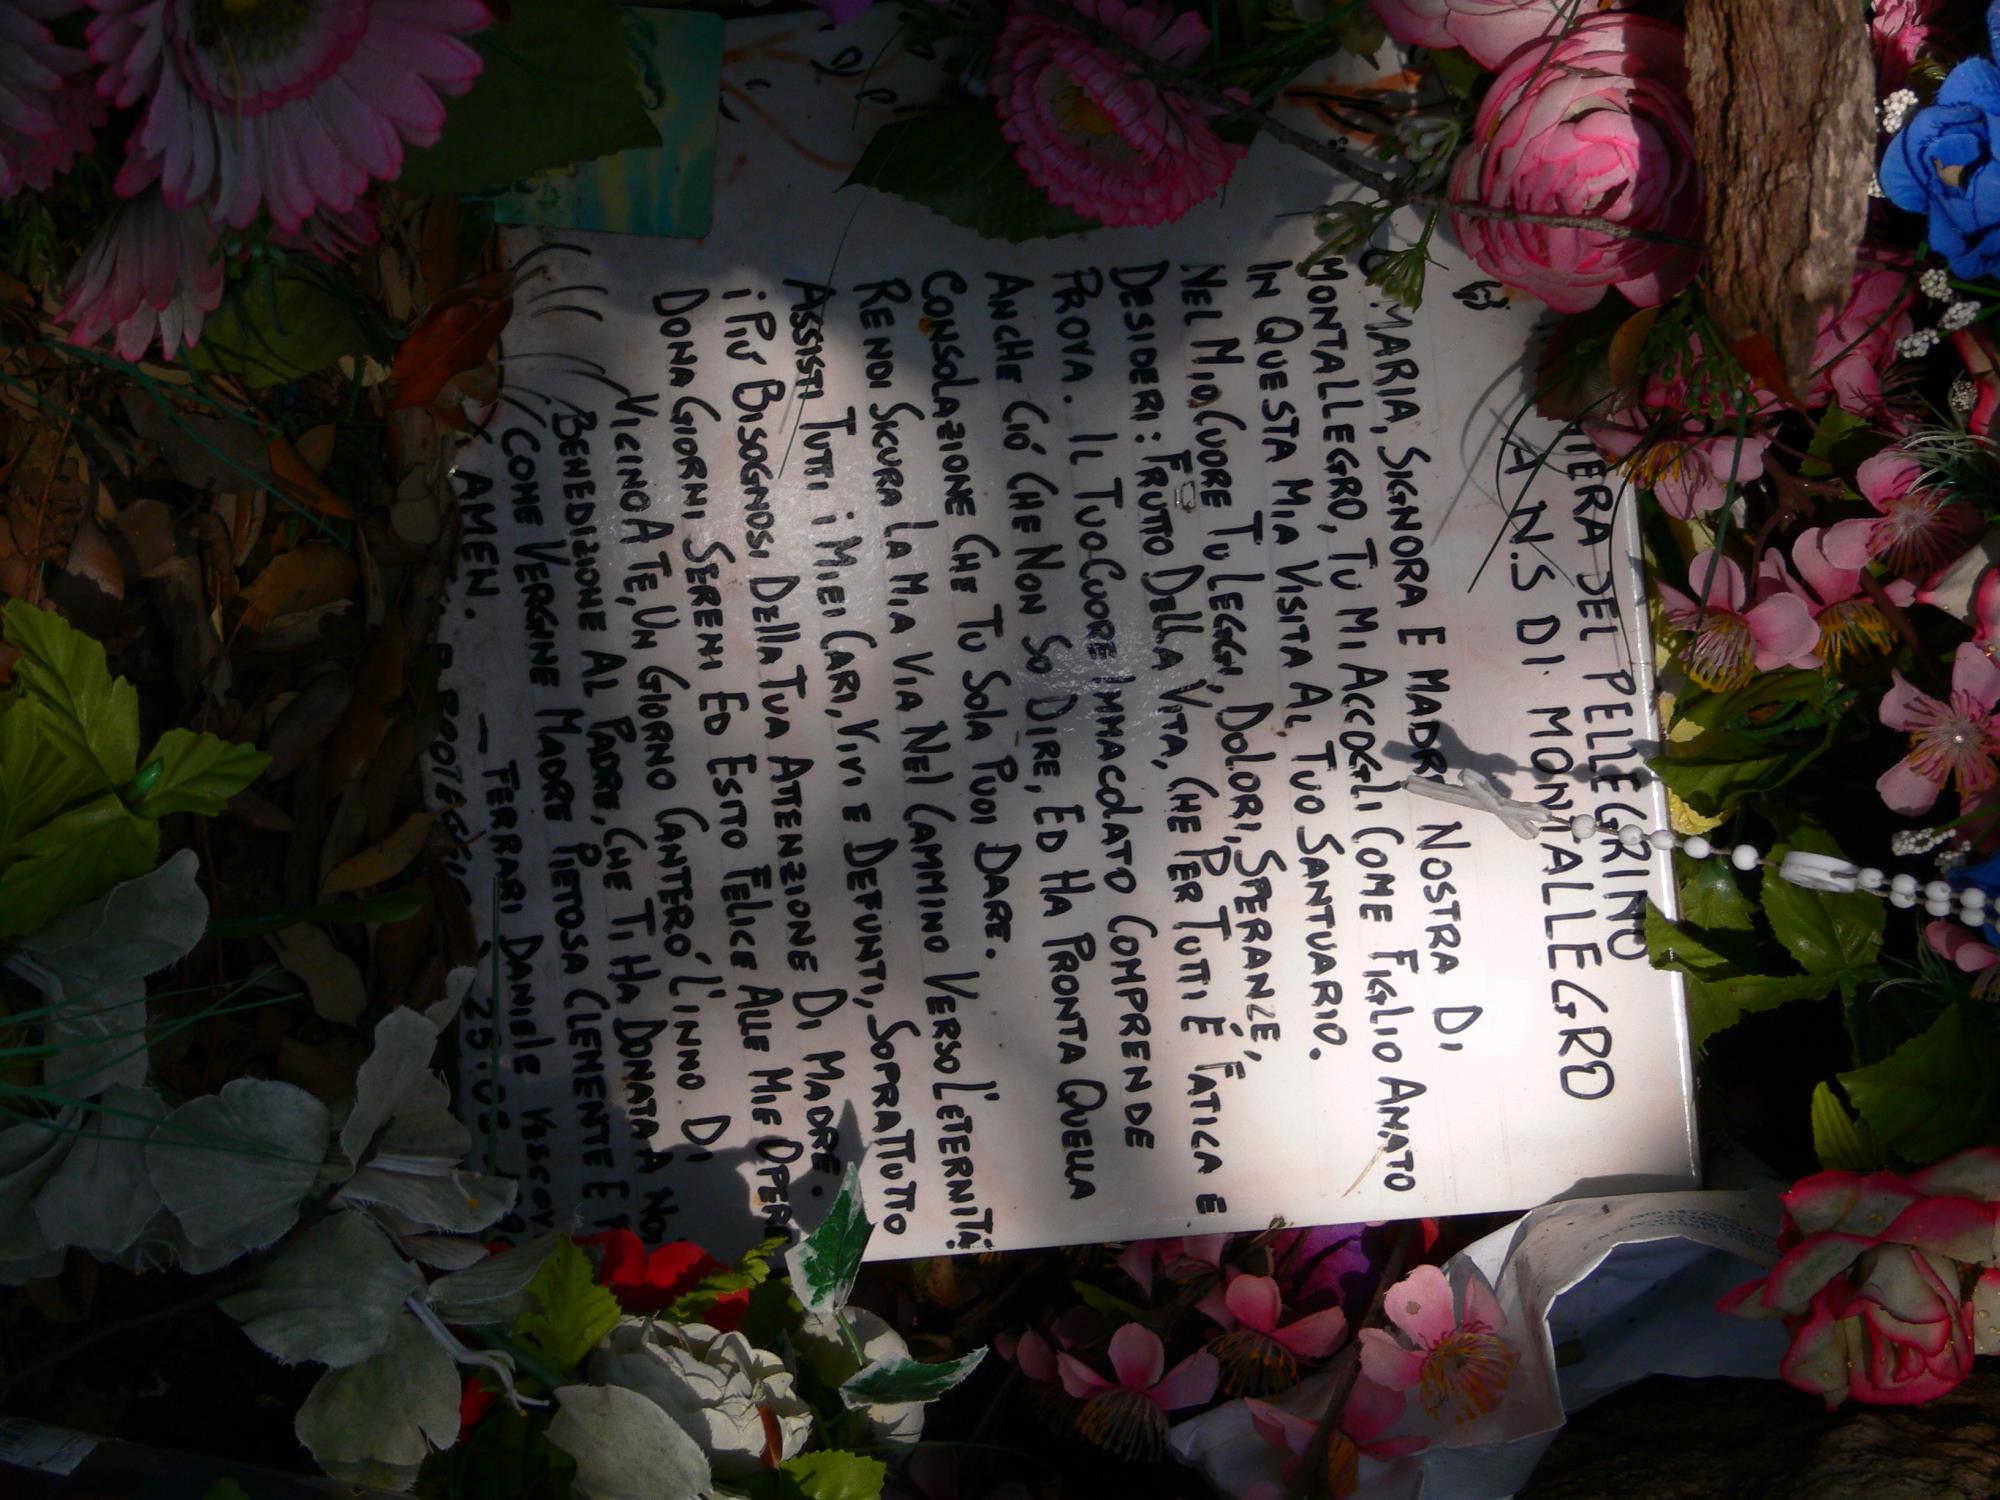 DEL PELLEGRINO
A N.S DI MONTALLEGRO
MARIA, SIGNORA E MADRE NOSTRA DI
MONTALLEGRO, TU MI ACCOGLI COME FIGLIO AMATO
IN QUESTA MIA VISITA AL TUO SANTUARIO.
NEL MIO CUORE TU LEGGI, DOLORI, SPERANZE,
DESIDERI: FRUTTO DELLA VITA, CHE PER TUTTI É FATICA E
PROVA. IL TUO CUORE IMMACOLATO COMPRENDE
ANCHE CIÓ CHE NON SO DIRE, ED HA PRONTA QUELLA
CONSOLAZIONE CHE TU SOLA PUOI DARE.
RENDI SICURA LA MIA VIA NEL CAMMINO VERSO L'ETERNITÁ
ASSISTI TUTTI i MIEI CARI, VIVI E DEFUNTI, SOPRATTUTTO
i PIÚ BISOGNOSI DELLA TUA ATTENZIONE DI MADRE.
DONA GIORNI SERENI ED ESITO FELICE ALLE MIE OPERE
VICINO A TE, UN GIORNO CANTERÓ L'INNO DI
BENEDIZIONE AL PADRE, CHE TI HA DONATA A NOI
COME VERGINE MADRE PIETOSA CLEMENTE E
AMEN. - FERRARI DANIELE